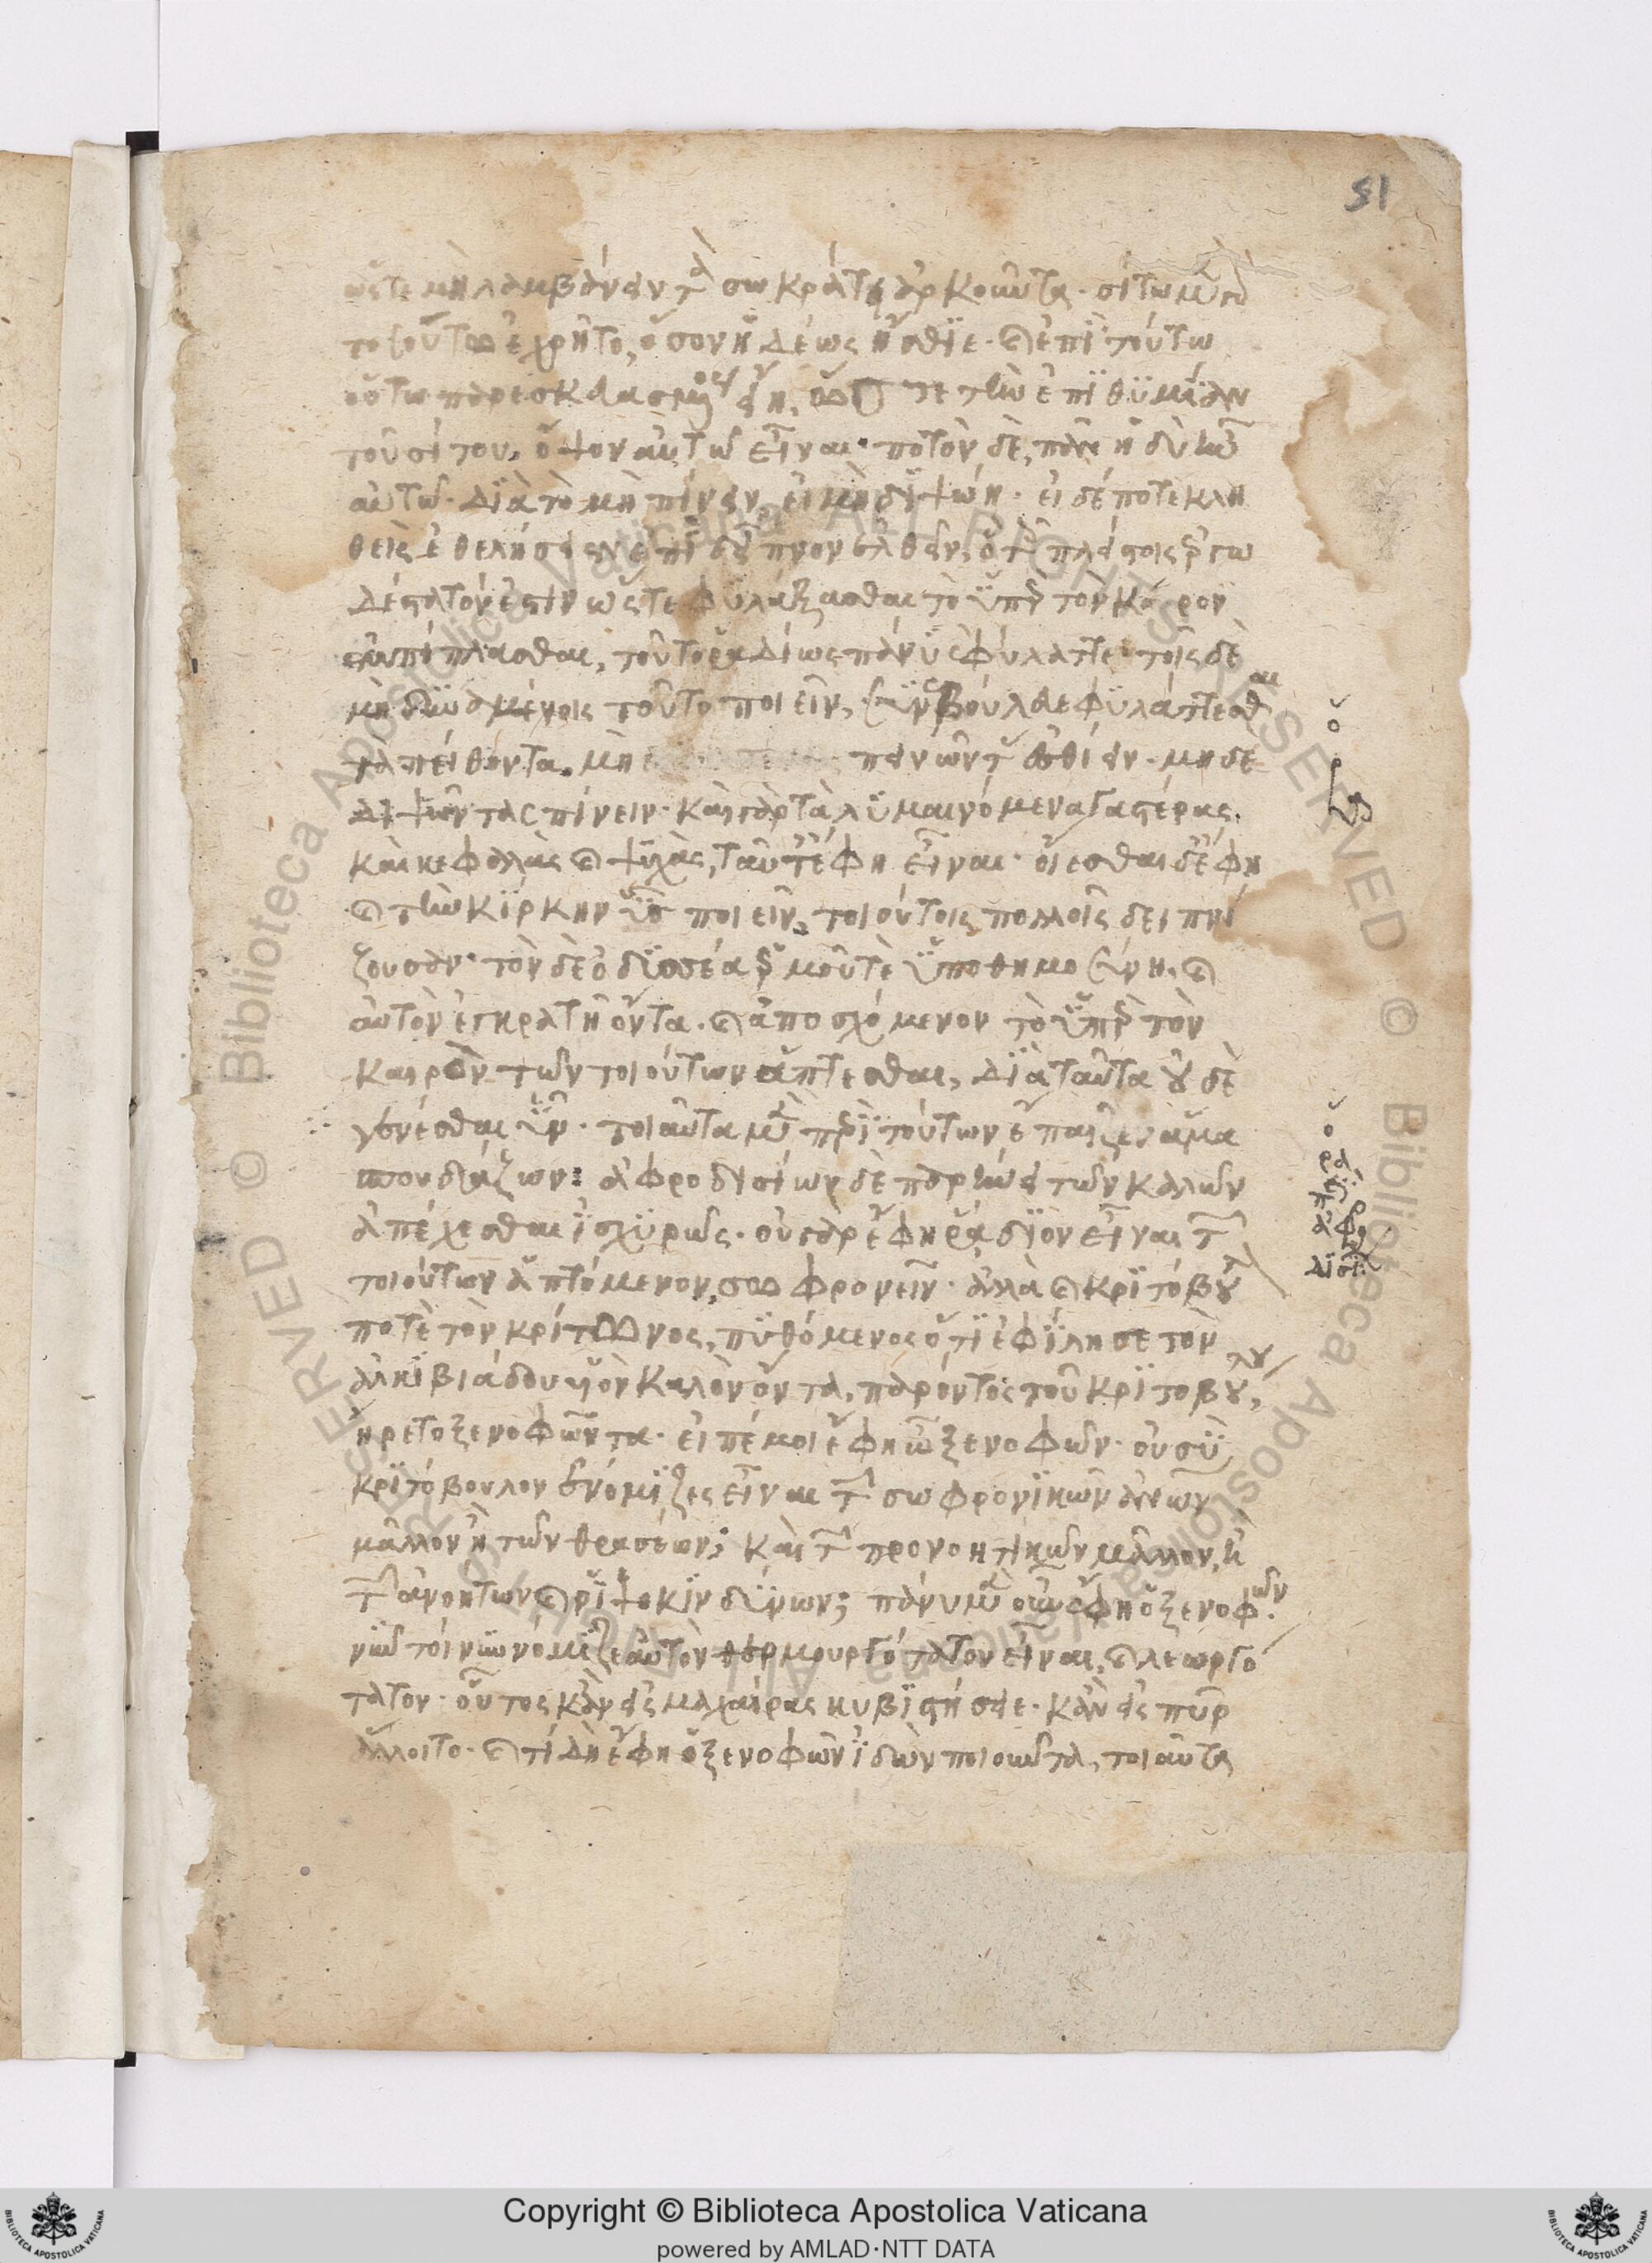 51
ὥστε μὴ λαμβάνειν τὰ σωκράτει ἀρκοῦντα· σίτω μὲν
τοσούτω ἐχρῆτο, ὅσον ἡδέως ἤσθιε· καὶ ἐπὶ τούτω
οὕτω παρεσκευασμένος ἤει, ὥστε τὴν ἐπιθυμίαν
τοῦ σίτου, ὄψον αὐτῶ εἶναι· ποτὸν δὲ, πᾶν ἡδὺ ἦν
αὐτῶ· διὰ τὸ μὴ πίνειν, εἰ μὴ διψώη· εἰ δέ ποτε κλη
θεὶς ἐθελήσειεν ἐπὶ δεῖπνον ἐλθεῖν, ὃ τοῖς πλείστοις ἐργω
δέστατόν ἐστιν ὥστε φυλάξασθαι τὸ ὑπὲρ τὸν καιρὸν
ἐμπίπλασθαι, τοῦτο ῥαδίως πάνυ ἐφυλάττετο· τοῖς δὲ
μὴ δυναμένοις τοῦτο ποιεῖν, συνεβούλευε φυλάττεσθαι
τὰ πείθοντα, μὴ πεινῶντας ἐσθίειν· μηδὲ
διψῶντας πίνειν· καὶ γὰρ τὰ λυμαινόμενα γαστέρας
καὶ κεφαλὰς καὶ ψυχὰς, ταῦτ' ἔφη εἶναι· οἴεσθαι δ' ἔφη
καὶ τὴν κίρκην ὗς ποιεῖν, τοιούτοις πολλοῖς δειπνί
ζουσαν· τὸν δὲ ὀδυσσέα ἑρμοῦ τε ὑποθημοσύνη, καὶ
αὐτὸν ἐγκρατῆ ὄντα· καὶ ἀποσχόμενον τὸ ὑπὲρ τὸν
καιρὸν τῶν τοιούτων ἅπτεσθαι, διὰ ταῦτα οὐδὲ
γενέσθαι ὗν· τοιαῦτα μὲν περὶ τούτων ἔπαιζεν ἅμα
σπουδάζων: ἀφροδισίων δὲ παρήνει τῶν καλῶν
ἀπέχεσθαι ἰσχυρῶς· οὐ γὰρ ἔφη ῥάδιον εἶναι τῶν
τοιούτων ἁπτόμενον, σωφρονεῖν· ἀλλὰ καὶ κριτόβουλον
ποτὲ τὸν κρίτωνος, πυθόμενος ὅτι ἐφίλησε τὸν
ἀλκιβιάδου υἱὸν καλὸν ὄντα, παρόντος τοῦ κριτοβούλου,
ἤρετο ξενοφῶντα· εἰπέ μοι ἔφη ὦ ξενοφῶν· οὐ σὺ
κριτόβουλον ἐνόμιζες εἶναι τῶν σωφρονικῶν ἀνθρώπων
μᾶλλον ἢ τῶν θρασέων; καὶ τῶν προνοητικῶν μᾶλλον, ἢ
τῶν ἀνοήτων καὶ ῥιψοκινδύνων; πάνυ μὲν οὖν ἔφη ὁ ξενοφῶν·
νῦν τοίνυν νόμιζε αὐτὸν θερμουργότατον εἶναι, καὶ λεωργό
τατον· οὗτος κἂν εἰς μαχαίρας κυβιστήσειε· κἂν εἰς πῦρ
ἅλοιτο· καὶ τί δὴ ἔφη ὁ ξενοφῶν ἰδὼν ποιοῦντα, τοιαῦτα
Copyright © Biblioteca Apostolica Vaticana
powered by AMLAD·NTT DATA